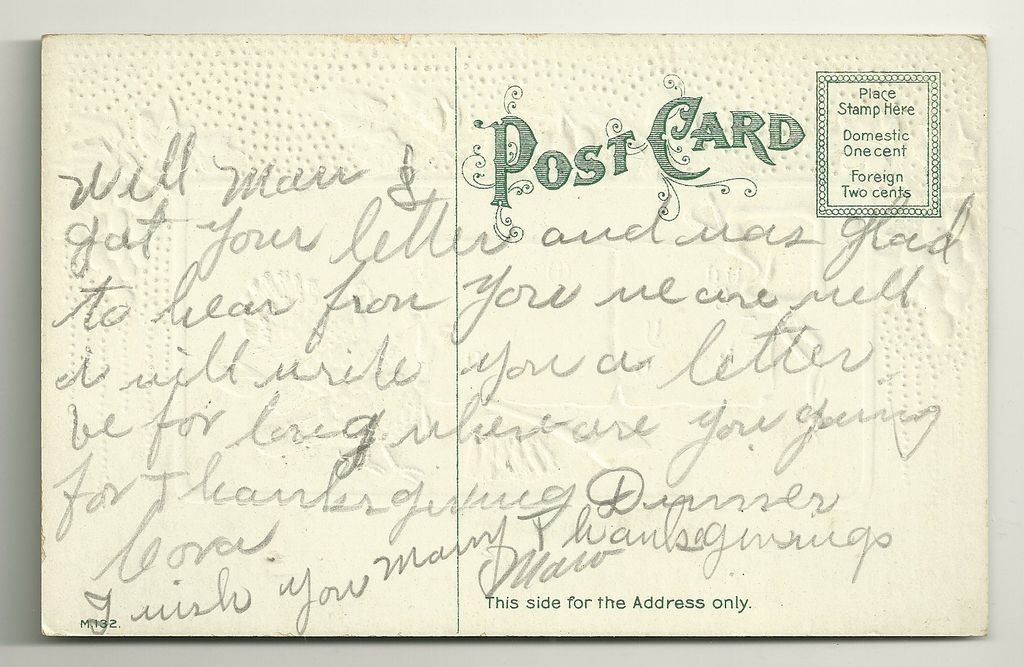 Post Card
Place
Stamp Here
Domestic
One cent
Foreign
Two cents
Well Marr I
gat your letter and was glad
to hear fron you we are well
I will write you a letter.
be for long where are you going
for Thanksgiveing Dinner
Cora
I wish you many Thanksginsings
This side for the Address only.
M.132.